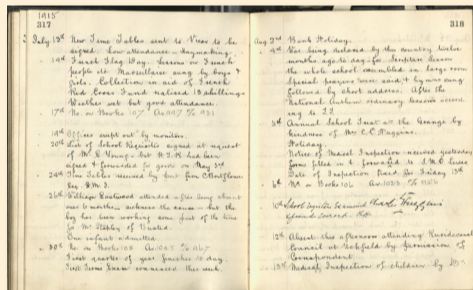 1915
317
July 13th New Time Tables sent to Vicar to be
signed. Low attendance - Haymaking.
14th French Flag Day. Lessons on French
people etc. Marseillaise sung by boys &
girls. Collection in aid of French
Red Cross Fund realised 13 shillings
Weather wet but good attendance.
17th No. on Books 107
19th Offices swept out by monitors.
20th List of School Requisites signed at request
of Mr. L. Young but H.T.R had been
signed & forwarded for goods on May 3rd
24th Time Tables received by post from
Esq. H.M.I.
26th William Eastwood attended after being absent
over 6 months. sickness the cause - but the
boy has been working some part of the time
for Mr.
One infant admitted.
30th No. on Books 108
First quarter of year finishes to-day.
First Term Exam commenced this week.
318
Aug 2nd Bank Holiday.
4th War being declared by this country twelve
months ago to-day for
the whole school assembled in large room
Special prayers were said & hymns sung
followed by short address. After the
National Anthem ordinary lessons
to T.T.
5th Annual School Treat at the Grange by
kindness of Mr C.C.
Holiday.
Notice of Medical Inspection received yesterday
form filled in & forwarded to S.M.O. Lewes
Date of Inspection fixed for Friday 13th
6th No. on Books 106
10th School
12th Absent this afternoon attending Rural
Council at Uckfield by permission of
Correspondent.
13th Medical Inspection of children by Dr